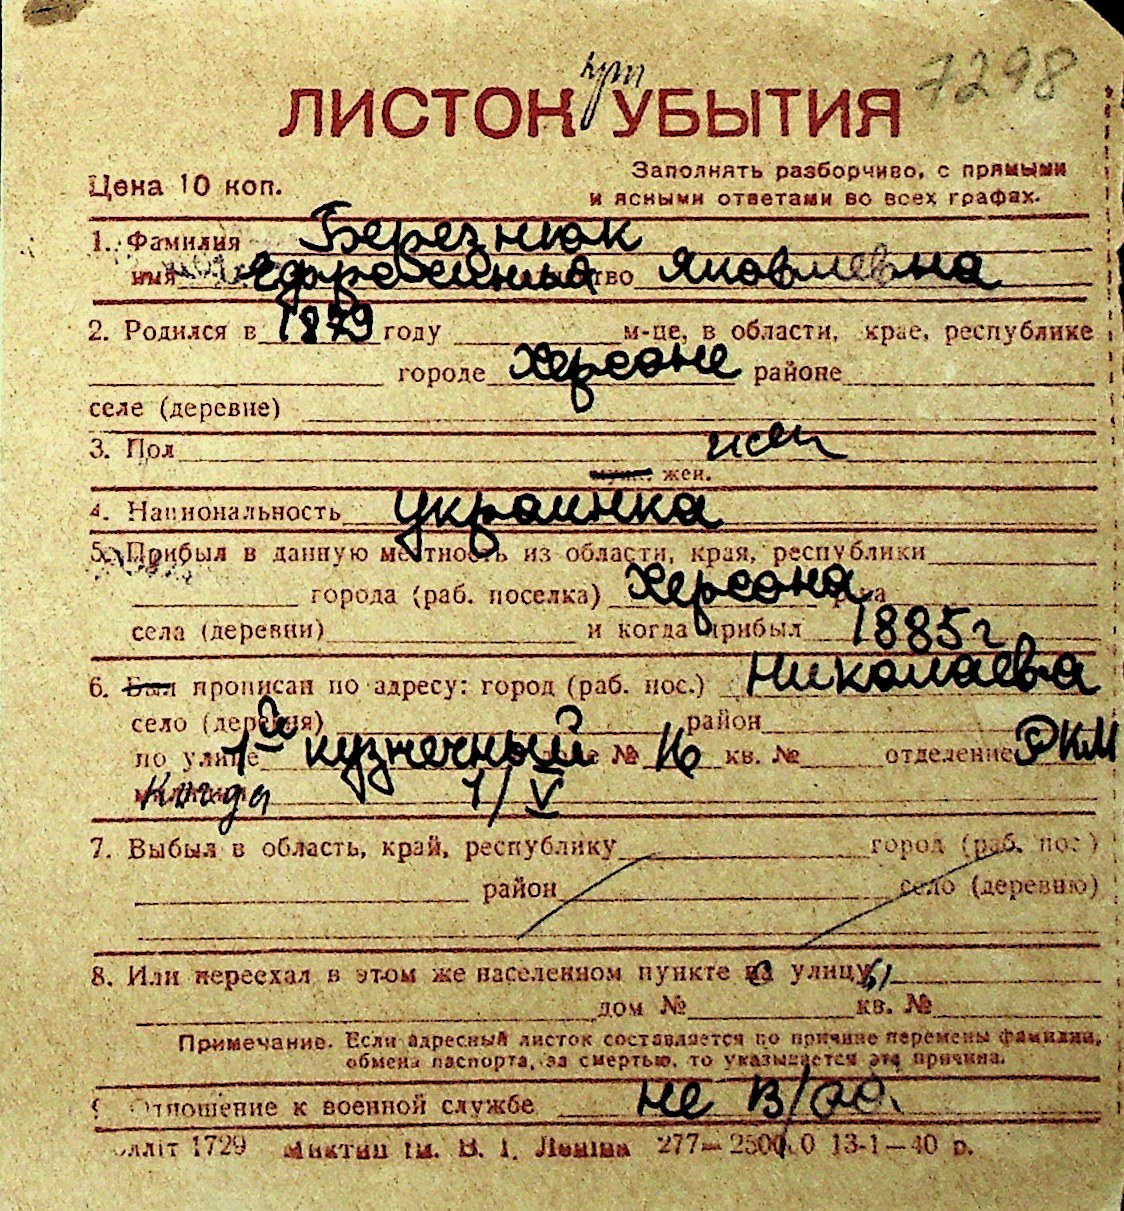 7298
ЛИСТОК УБЫТИЯ
Цена 10 коп.
Заполнять разборчиво, с прямыми
и ясными ответами во всех графах.
1. Фамилия Березнюк
имя Яковлевна
2. Родился в 1879 году м-це, в области, крае, республике
городе Херсоне районе
селе (деревне)
3. Пол жен
муж. жен.
4. Национальность украинка
5. Прибыл в данную местность из области, края, республики
города (раб. поселка) Херсона
села (деревни) и когда прибыл 1885 г
6. Был прописан по адресу: город (раб. пос.) Николаева
село (деревня) район
по улице 1й кузнечный № 16 кв. № отделение РКМ
Когда 1/V
7. Выбыл в область, край, республику город (раб. пос.)
район село (деревню)
8. Или переехал в этом же населенном пункте улицу
дом № кв. №
Примечание. Если адресный листок составляется по причине перемены фамилии,
обмена паспорта, за смертью, то указывается эта причина.
Отношение к военной службе не в/об.
1729 ім. В. І. Леніна 277— 13-1—40 р.